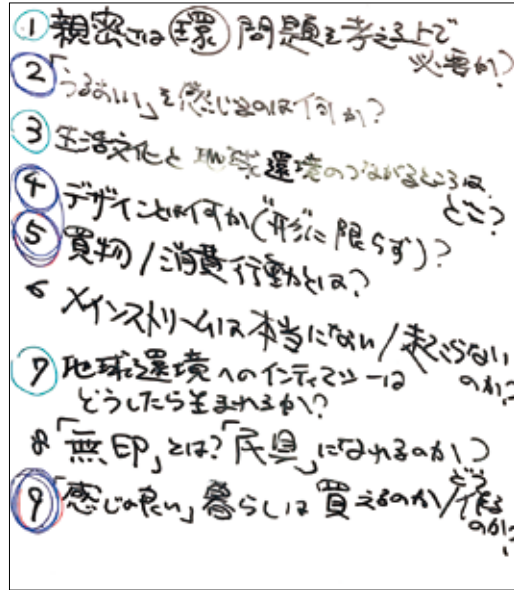 1 親密さは環問題を考える上で
必要か?
2 「うるおい」を感じるのは何か?
3 生活文化と地球環境のつながるところは
どこ?
4 デザインとは何か("形"に限らず)?
5 買物/消費行動とは?
6 メインストリームは本当にない/起こらない
のか?
7 地球環境へのインティマシーは
どうしたら生まれるか?
8 「無印」とは?「民具」になれるのか?
9 「感じ良い」暮らしは買えるのか/どう作る
のか?